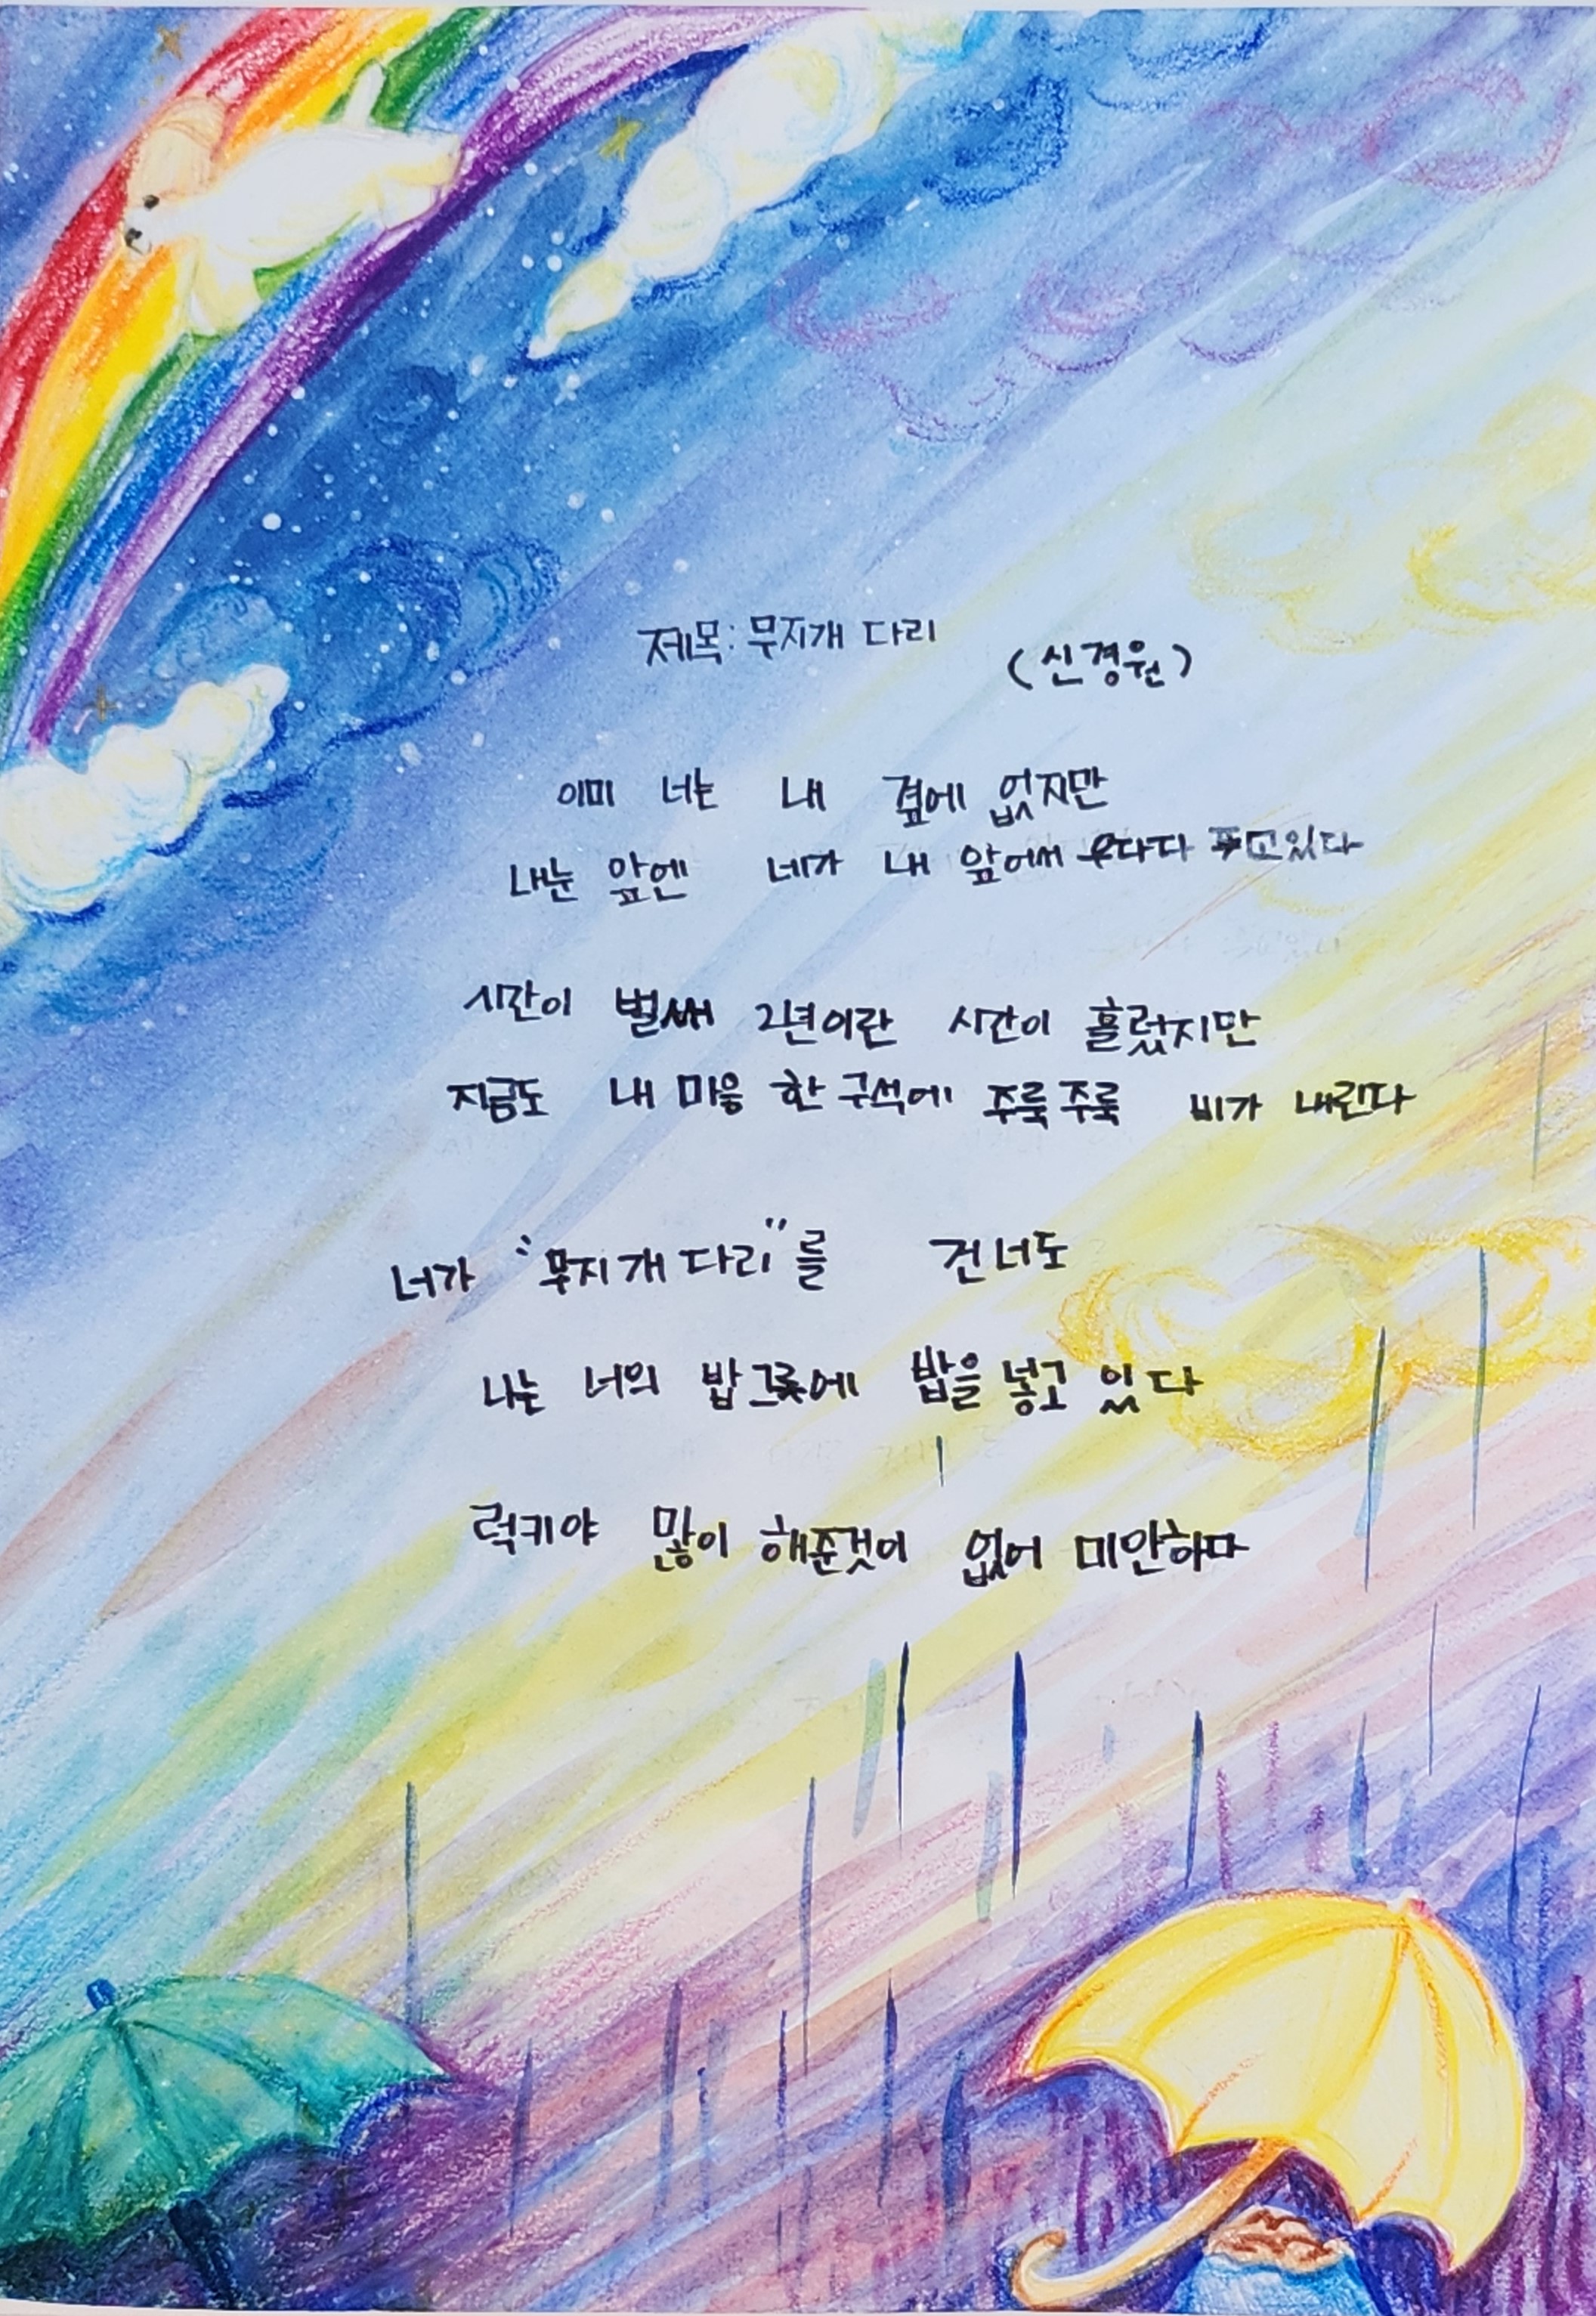 제목: 무지개 다리
(신경원)
이미 너는 내 곁에 없지만
내눈 앞엔 네가 내 앞에서 우다다 하고있다
시간이 벌써 2년이란 시간이 흘렀지만
지금도 내 마음 한 구석에 주룩주룩 비가 내린다
너가 "무지개 다리"를 건너도
나는 너의 밥그릇에 밥을 넣고 있다
럭키야 많이 해준것이 없어 미안하다